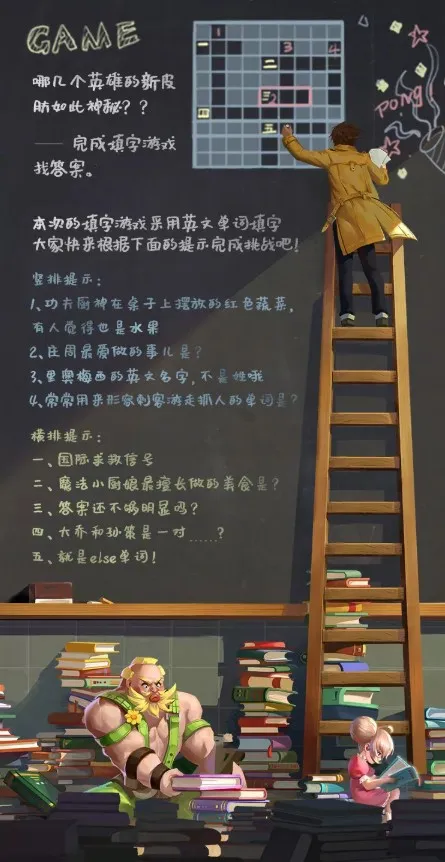 GAME
1
一
3
4
二
三2
四
五
PONG
哪几个英雄的新皮
肤如此神秘??
—— 完成填字游戏
找答案。
本次的填字游戏采用英文单词填字
大家快来根据下面的提示完成挑战吧!
竖排提示:
1、功夫厨神在桌子上摆放的红色蔬菜,
有人觉得也是水果
2、庄周最爱做的事儿是?
3、里奥梅西的英文名字,不是姓哦
4、常常用来形容刺客游走抓人的单词是?
横排提示:
一、国际求救信号
二、魔法小厨娘最擅长做的美食是?
三、答案还不够明显吗?
四、大乔和孙策是一对……?
五、就是else单词!